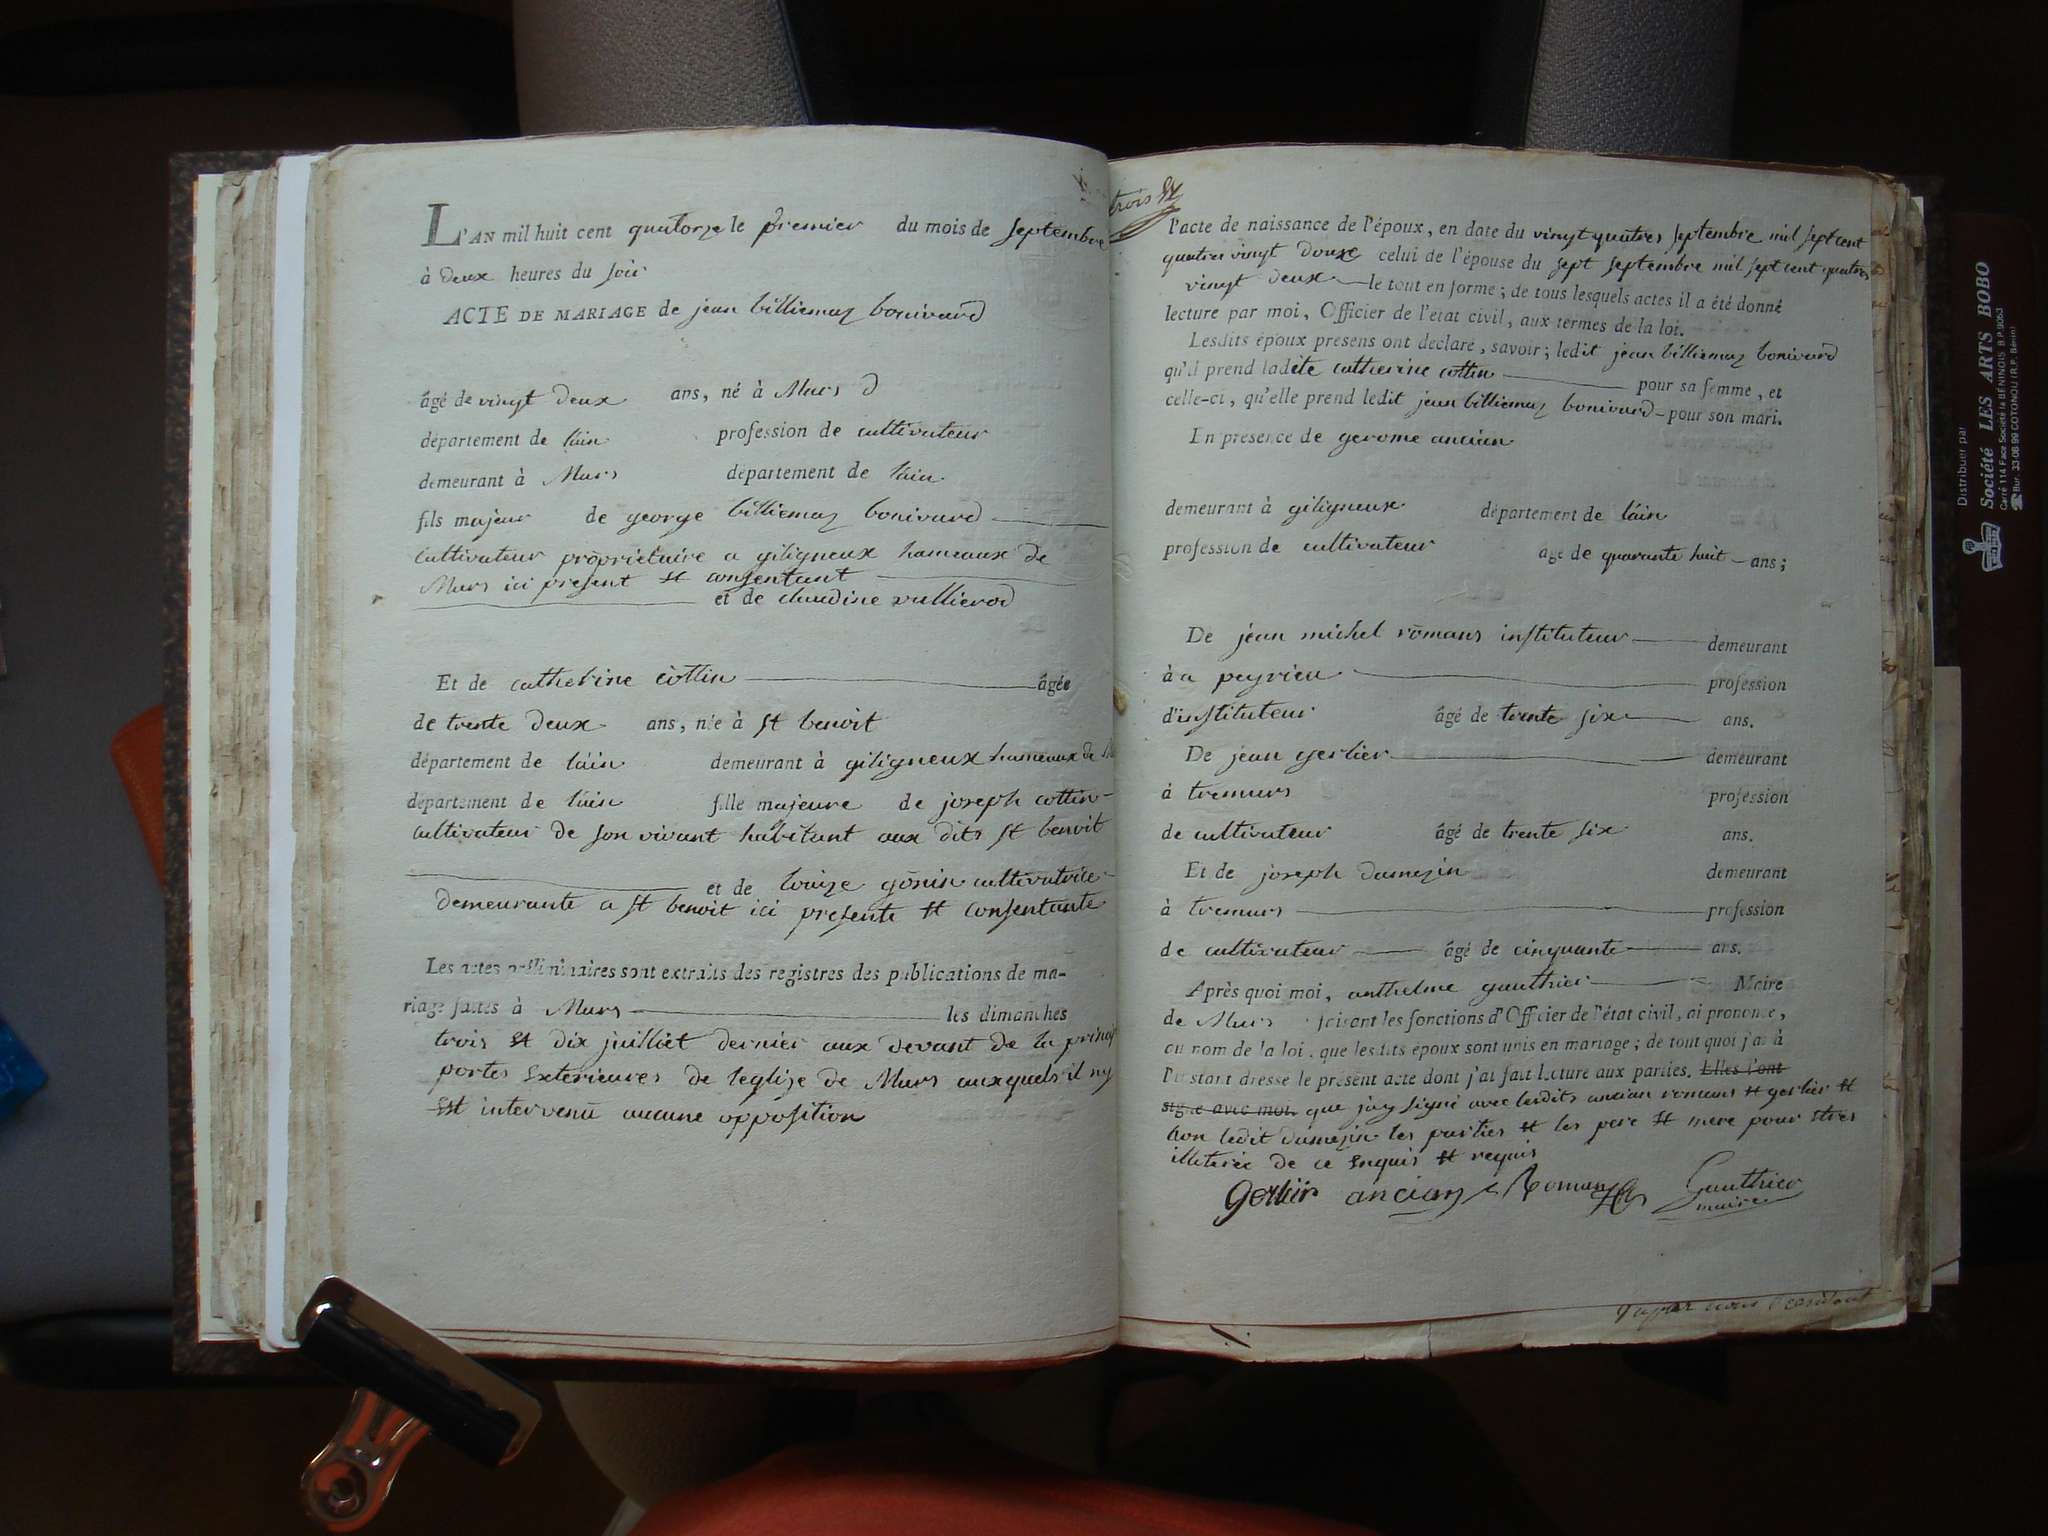 L'AN mil huit cent quatorze le premier du mois de septembre
à deux heures du soir
ACTE DE MARIAGE de jean billiemaz bonivard
âgé de vingt deux ans, né à Murs
département de lain profession de cultivateur
demeurant à Murs département de lain
fils majeur de george billiemaz bonivard
cultivateur proprietaire a giligneux hameaux de
Murs ici present et consentant
et de claudine vullierod
Et de catherine cottin âgée
de trente deux ans, née à st benoit
département de lain demeurant à giligneux hameaux de
département de lain fille majeure de joseph cottin
cultivateur de son vivant habitant aux dits st benoit
et de louize gonin cultivatrice
demeurante a st benoit ici presente et consentante
Les actes préliminaires sont extraits des registres des publications de ma-
riage faites à Murs les dimanches
trois et dix juilliet dernier aux devant de la
portes exterieures de leglize de Murs auxquels il ny
est intervenu aucune opposition
trois
l'acte de naissance de l'époux, en date du vingt quatres septembre mil sept cent
quatres vingt douze celui de l'épouse du sept septembre mil sept cent quatres
vingt deux le tout en forme; de tous lesquels actes il a été donné
lecture par moi, Officier de l'état civil, aux termes de la loi.
Lesdits époux présens ont déclaré, savoir; ledit jean billiemaz bonivard
qu'il prend ladite catherine cottin pour sa femme, et
celle-ci, qu'elle prend ledit jean billiemaz bonivard pour son mari.
En présence de gerome ancian
demeurant à giligneux département de lain
profession de cultivateur agé de quarante huit ans;
De jean michel romans instituteur demeurant
à a peyrieu profession
d'instituteur âgé de trente six ans.
De jean gerlier demeurant
à tremurs profession
de cultivateur âgé de trente six ans.
Et de joseph dumezin demeurant
à tremurs profession
de cultivateur âgé de cinquante ans.
Après quoi moi, anthelme gauthier Maire
de Murs faisant les fonctions d'Officier de l'état civil, ai prononcé,
au nom de la loi, que lesdits époux sont unis en mariage; de tout quoi j'ai à
l'instant dressé le présent acte dont j'ai fait lecture aux parties. Elles l'ont
signé avec moi. que jay signé avec lesdits ancian romans et gerlier et
non ledit dumezin les parties et les pere et mere pour etres
illiterés de ce enquis et requis
Gerlier ancian Romans Gauthier
maire
Distribuer par
Société LES ARTS BOBO
Carré 114 Face Société la BENINOIS B.P. 9053
Bur. 33 08 99 COTONOU (R.P. Bénin)